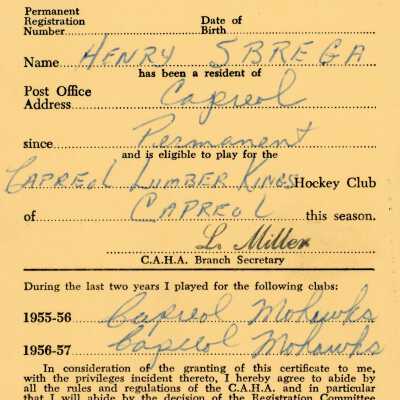 Permanent
Registration Date of
Number Birth
Name HENRY SBREGA
has been a resident of
Post Office
Address Capreol
since Permanent
and is eligible to play for the
CAPREOL LUMBER KINGS Hockey Club
of CAPREOL this season.
L. Miller
C.A.H.A. Branch Secretary
During the last two years I played for the following clubs:
1955-56 Capreol Mohawks
1956-57 Capreol Mohawks
In consideration of the granting of this certificate to me,
with the privileges incident thereto, I hereby agree to abide by
all the rules and regulations of the C.A.H.A. and in particular
that I will abide by the decision of the Registration Committee